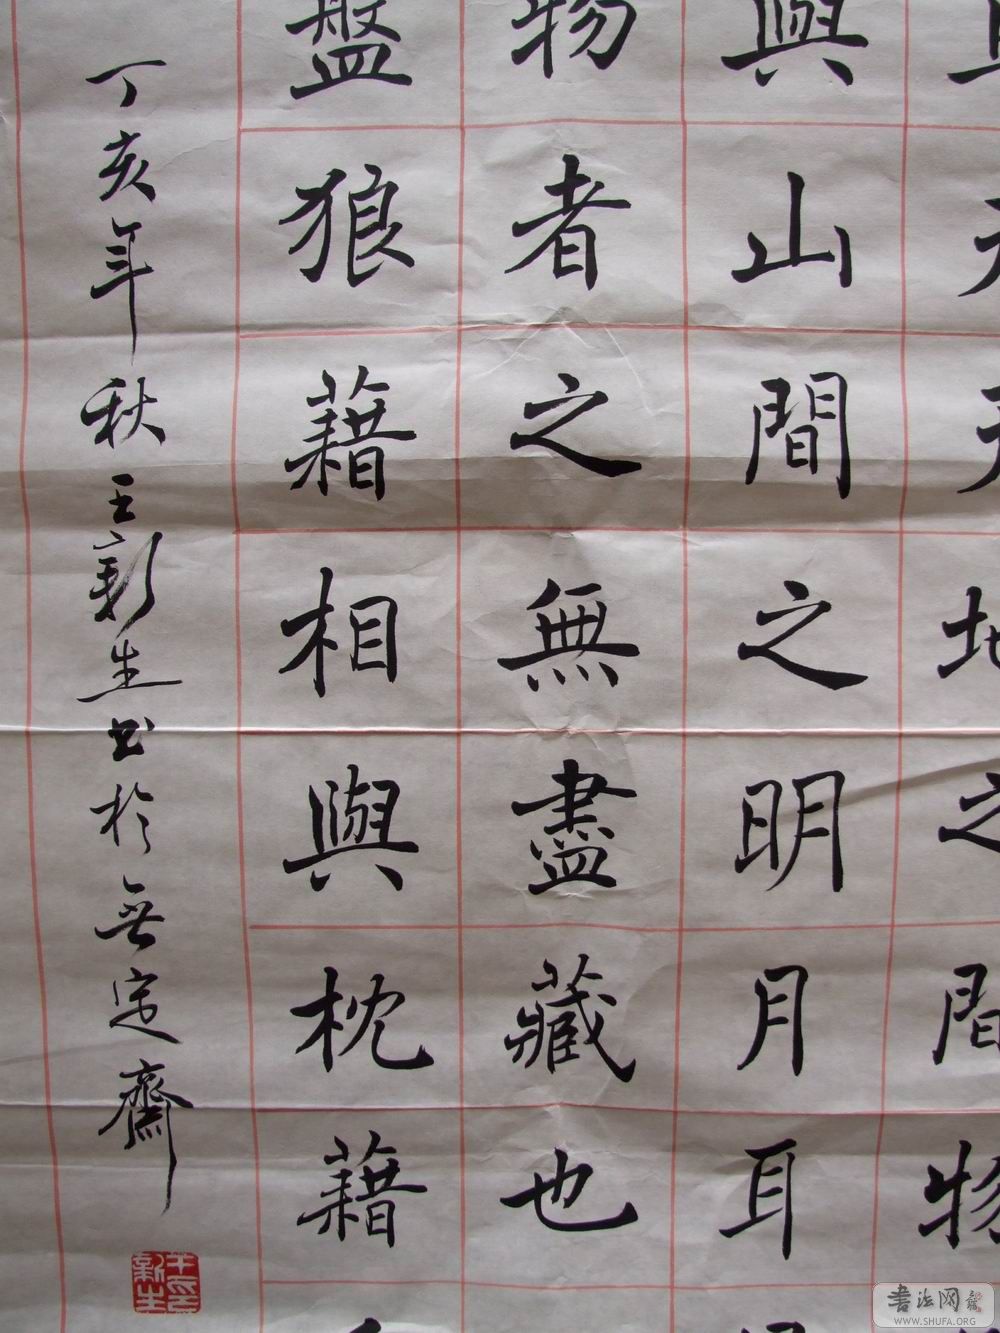 且夫天地之間物
與山間之明月耳
物者之無盡藏也
盤狼藉相與枕藉
丁亥年秋王新生书於無定齋
王印新生
書法网
WWW.SHUFA.ORG